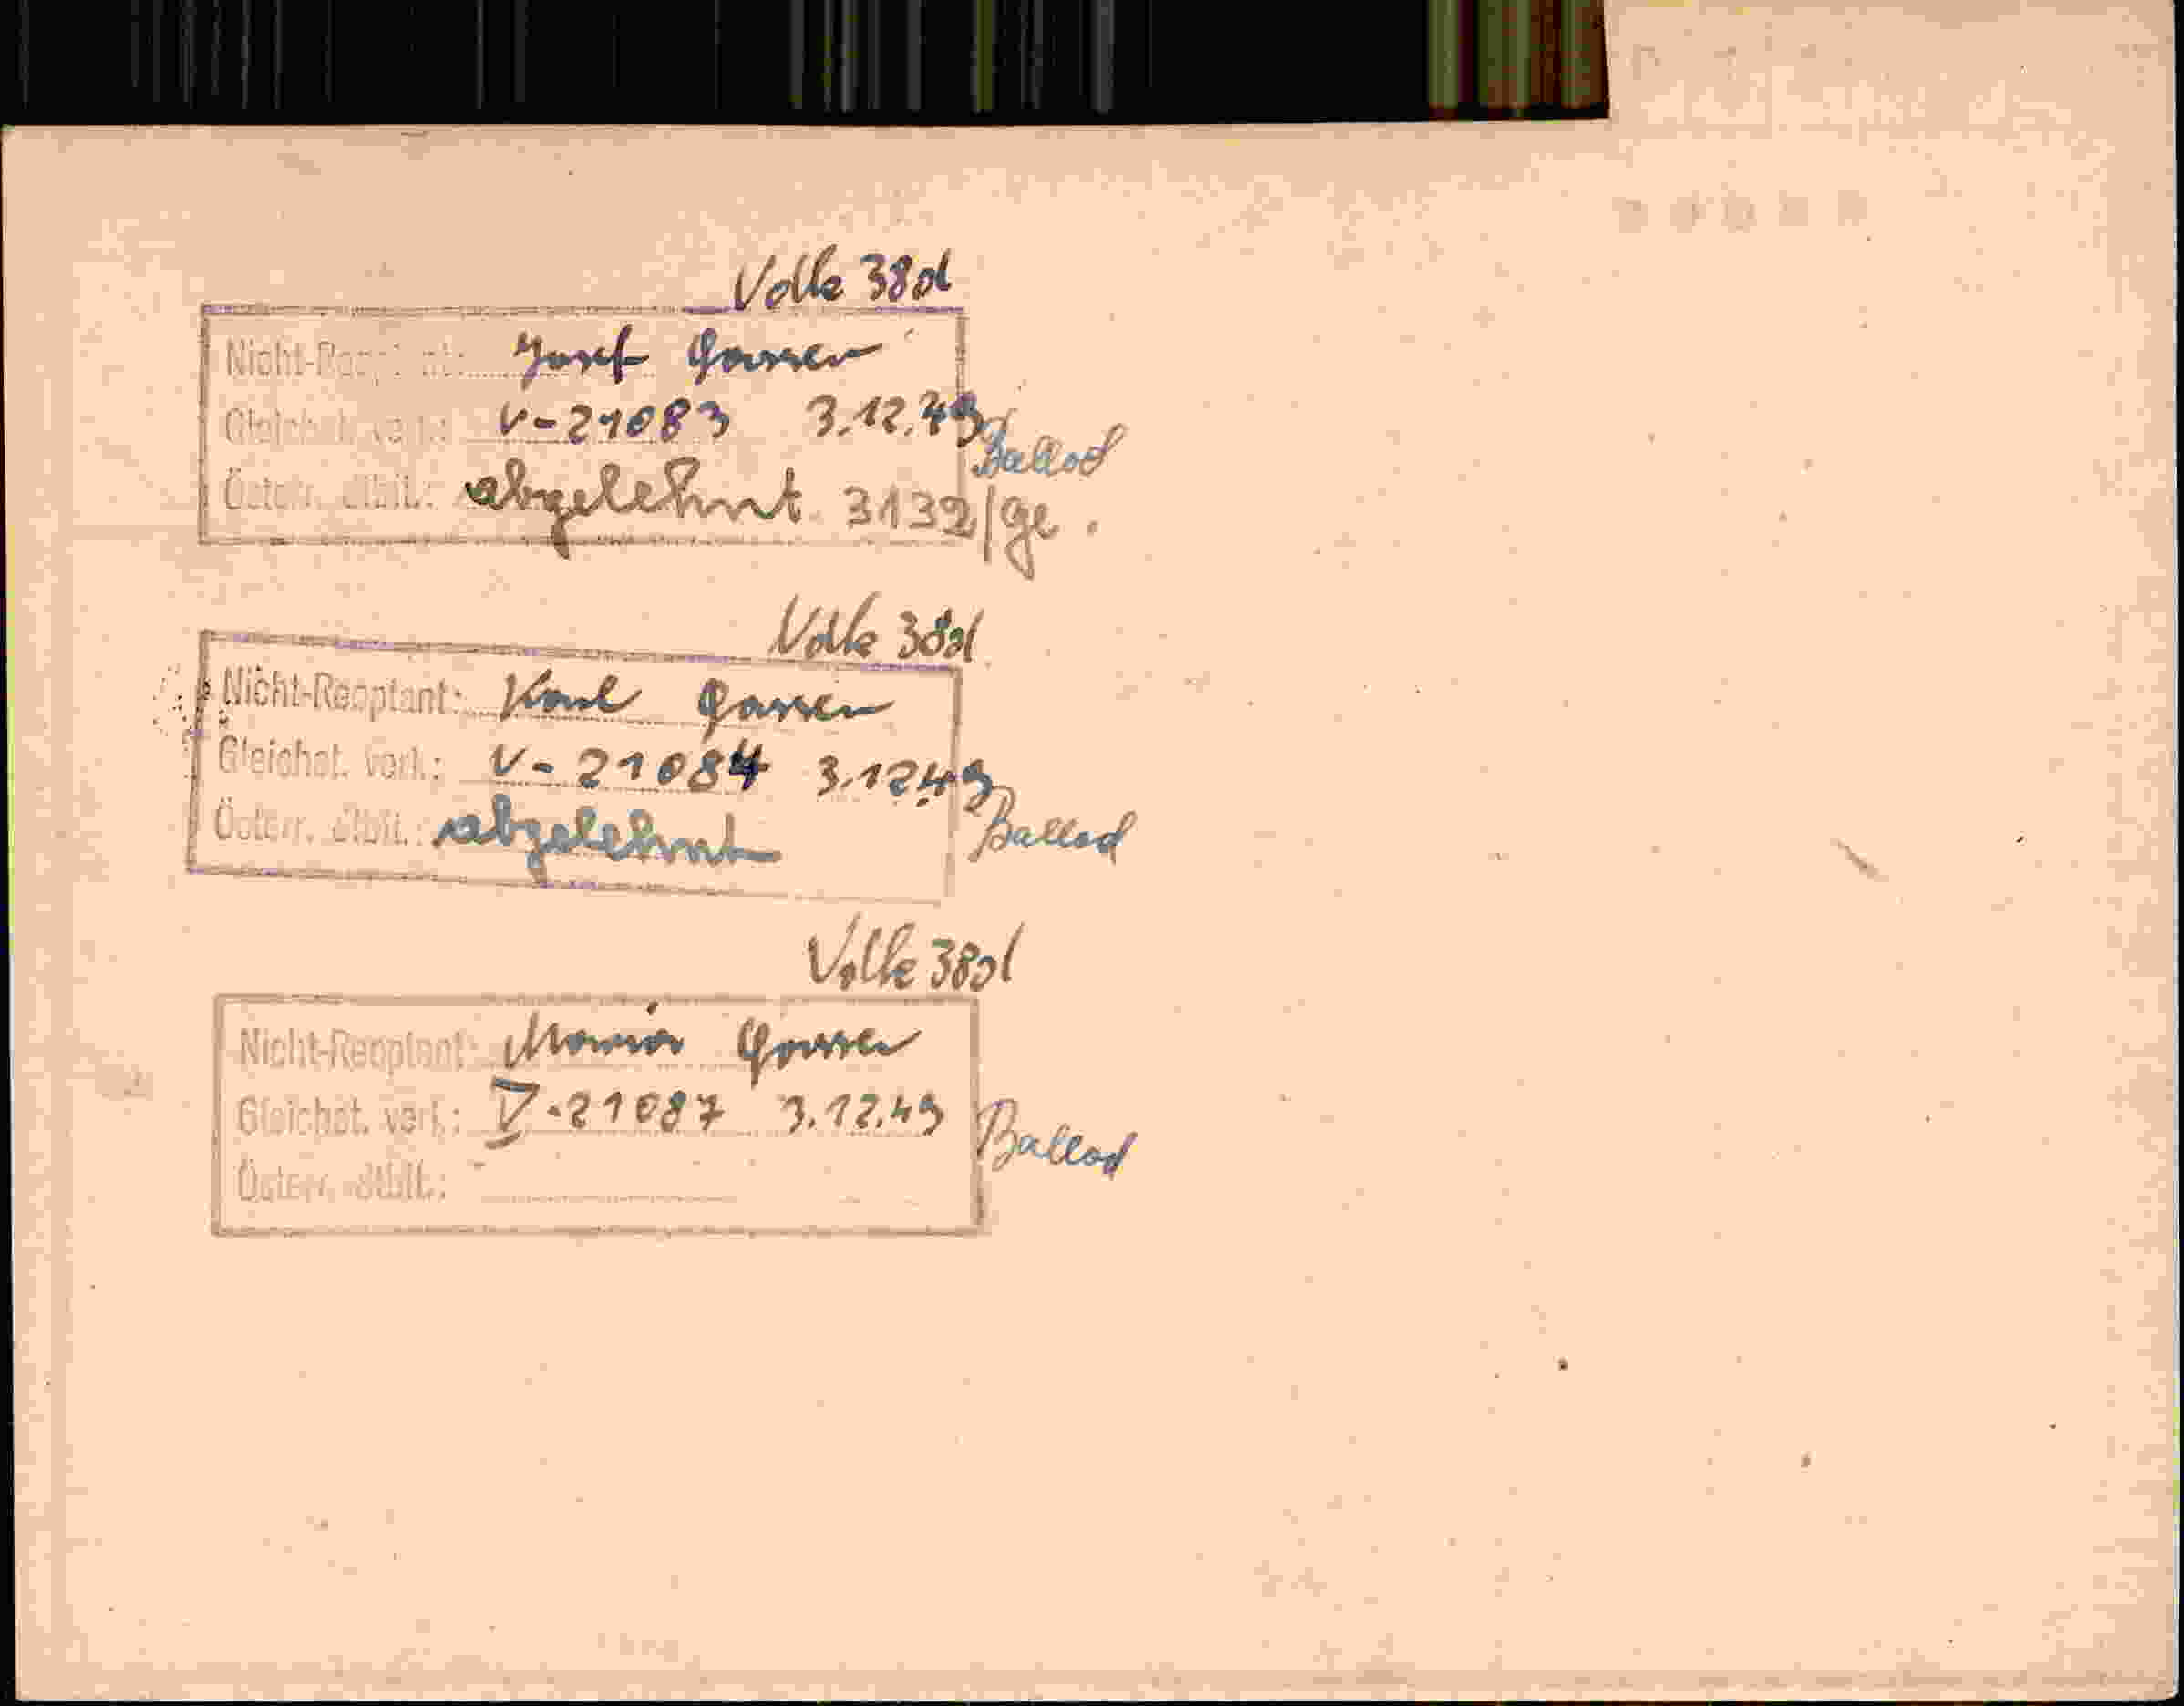 Volk 38d
Nicht-Reoptant: Josef Gasser
Gleichst. verl.: V-21083 3.12.49 Ballod
Österr. dtbit.: abgelehnt 3132/ge.
Volk 38d
Nicht-Reoptant: Karl Gasser
Gleichst. verl.: V-21084 3.12.49
Österr. abgelehnt Ballod
Volk 38d
Nicht-Reoptant: Maria Gasser
Gleichst. verl.: V-21087 3.12.49 Ballod
Österr.